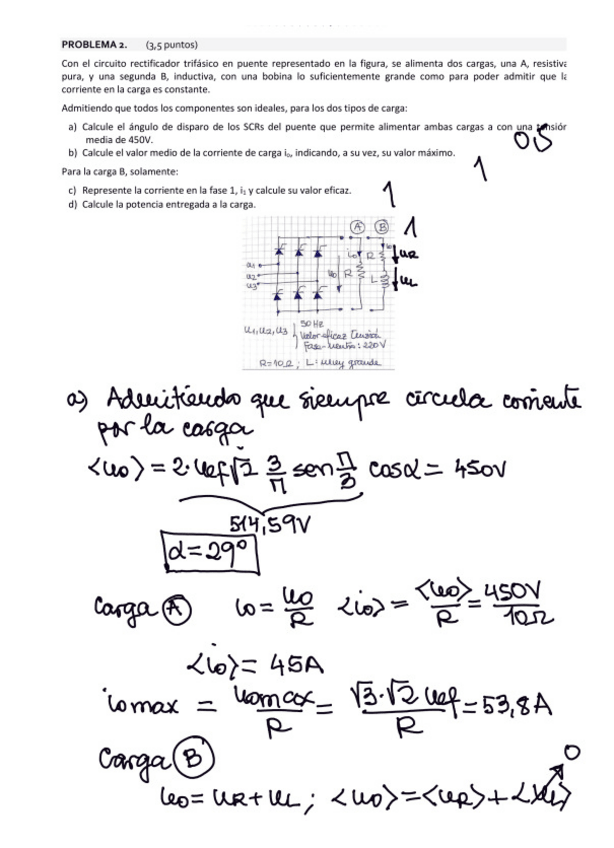 PROBLEMA 2. (3,5 puntos)
Con el circuito rectificador trifásico en puente representado en la figura, se alimenta dos cargas, una A, resistiva
pura, y una segunda B, inductiva, con una bobina lo suficientemente grande como para poder admitir que la
corriente en la carga es constante.
Admitiendo que todos los componentes son ideales, para los dos tipos de carga:
a) Calcule el ángulo de disparo de los SCRs del puente que permite alimentar ambas cargas a con una tensión
media de 450V.
05
b) Calcule el valor medio de la corriente de carga i₀, indicando, a su vez, su valor máximo.
1
Para la carga B, solamente:
c) Represente la corriente en la fase 1, i₁ y calcule su valor eficaz.
1
d) Calcule la potencia entregada a la carga.
A B 1
io R uR
u1
u2 uo R L uL
u3
u1, u2, u3 50 Hz
Valor eficaz Tensión
Fase-neutro: 220V
R=10Ω ; L=muy grande
a) Admitiendo que siempre circula corriente
por la carga
<uo> = 2·Uef√2 3/π sen π/3 cosα = 450V
514,59V
α = 29º
Carga A io = uo/R <io> = <uo>/R = 450V/10Ω
<io> = 45A
iomax = uomax/R = √3·√2 Uef/R = 53,8A
Carga B
uo = uR + uL ; <uo> = <uR> + <uL> 0